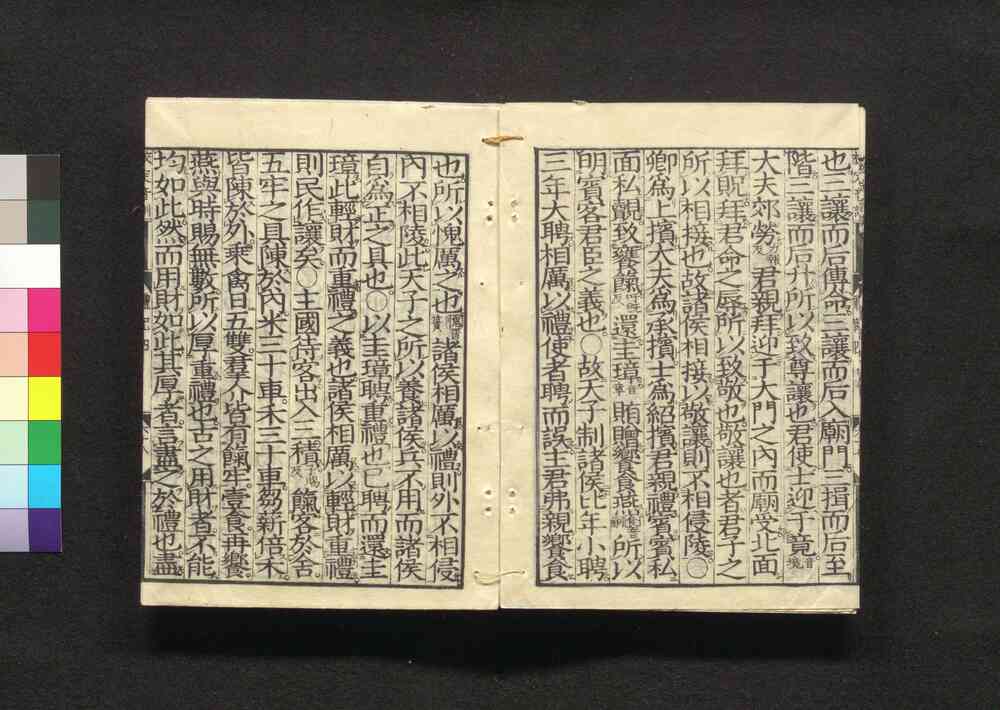 也三讓而后傳命三讓而后入廟門三揖而后至
階三讓而后升所以致尊讓也君使士迎于竟音境
大夫郊勞君親拜迎于大門之內而廟受北面
拜貺拜君命之辱所以致敬也敬讓也者君子之
所以相接也故諸侯相接以敬讓則不相侵陵○
卿為上擯大夫為承擯士為紹擯君親禮賓賓私
面私覿致饔餼還圭璋賄贈饗食燕所以
明賓客君臣之義也○故天子制諸侯比年小聘
三年大聘相厲以禮使者聘而誤主君弗親饗食
也所以愧厲之也諸侯相厲以禮則外不相侵
內不相陵此天子之所以養諸侯兵不用而諸侯
自為正之具也○以圭璋聘重禮也已聘而還圭
璋此輕財而重禮之義也諸侯相厲以輕財重禮
則民作讓矣○主國待客出入三積餼客於舍
五牢之具陳於內米三十車禾三十車芻薪倍禾
皆陳於外乘禽日五雙羣介皆有餼牢壹食再饗
燕與時賜無數所以厚重禮也古之用財者不能
均如此然而用財如此其厚者言盡之於禮也盡